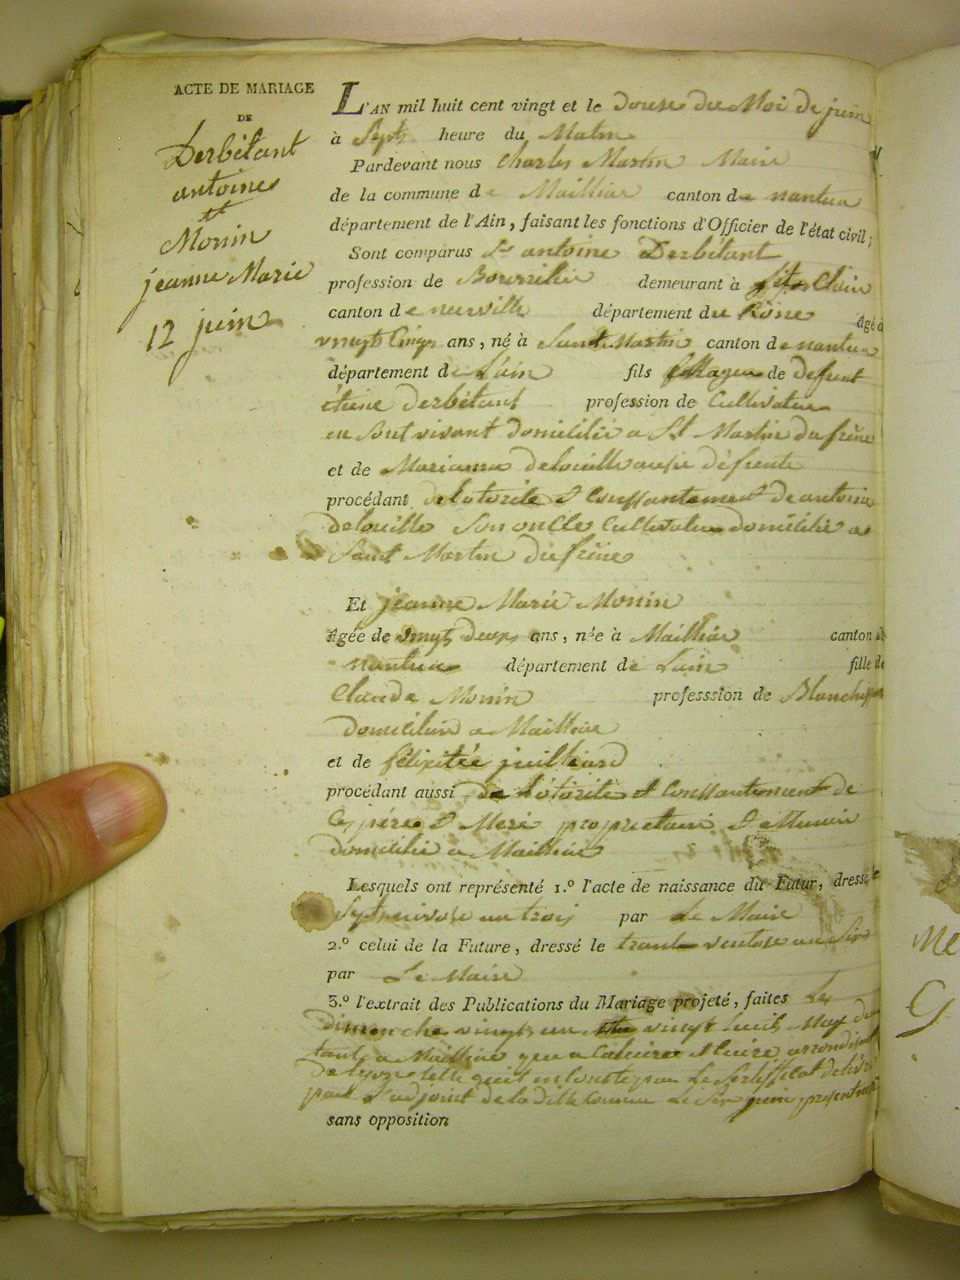 ACTE DE MARIAGE
DE
Derbétant
antoine
et
Monin
jeanne Marie
12 juin
L'AN mil huit cent vingt et le douse du Moi de juin
à Sept heure du Matin
Pardevant nous Charles Martin Maire
de la commune de Mailliat canton de nantua
département de l'Ain, faisant les fonctions d'Officier de l'état civil;
Sont comparus Sr antoine Derbétant
profession de demeurant à
canton de neuville département du Rône âgé d
vingt Cinq ans, né à Saint Martin canton de nantua
département de Lain fils de defunt
étiene Derbétant profession de Cultivateur
en Sont vivant domicilié a St Martin du frêne
et de Marianne delouille aussi défunte
procédant de latorité et Conssantement de antoine
delouille Son oncle Cultivateur domicilié a
Saint Martin du frêne
Et jeanne Marie Monin
âgée de vingt deux ans, née à Mailliat canton de
nantua département de Lain fille de
Claude Monin professsion de
a Mailliat
et de félixitée juilliard
procédant aussi de Latorité et Conssantement de
Ces père et Mere propriétaire et
domicilié a Mailliat
Lesquels ont représenté 1.º l'acte de naissance du Futur, dressé le
Sept nivose an trois par Le Maire
2.º celui de la Future, dressé le trante ventose an Six
par Le Maire
3.º l'extrait des Publications du Mariage projeté, faites Les
dimanche vingt un vingt huit May
tant a Mailliat que a Caluire
de Lyon telle quil en Conste par Le Sertifficat délivré
par L'adjoint de la ditte Commune Le Six juin
sans opposition